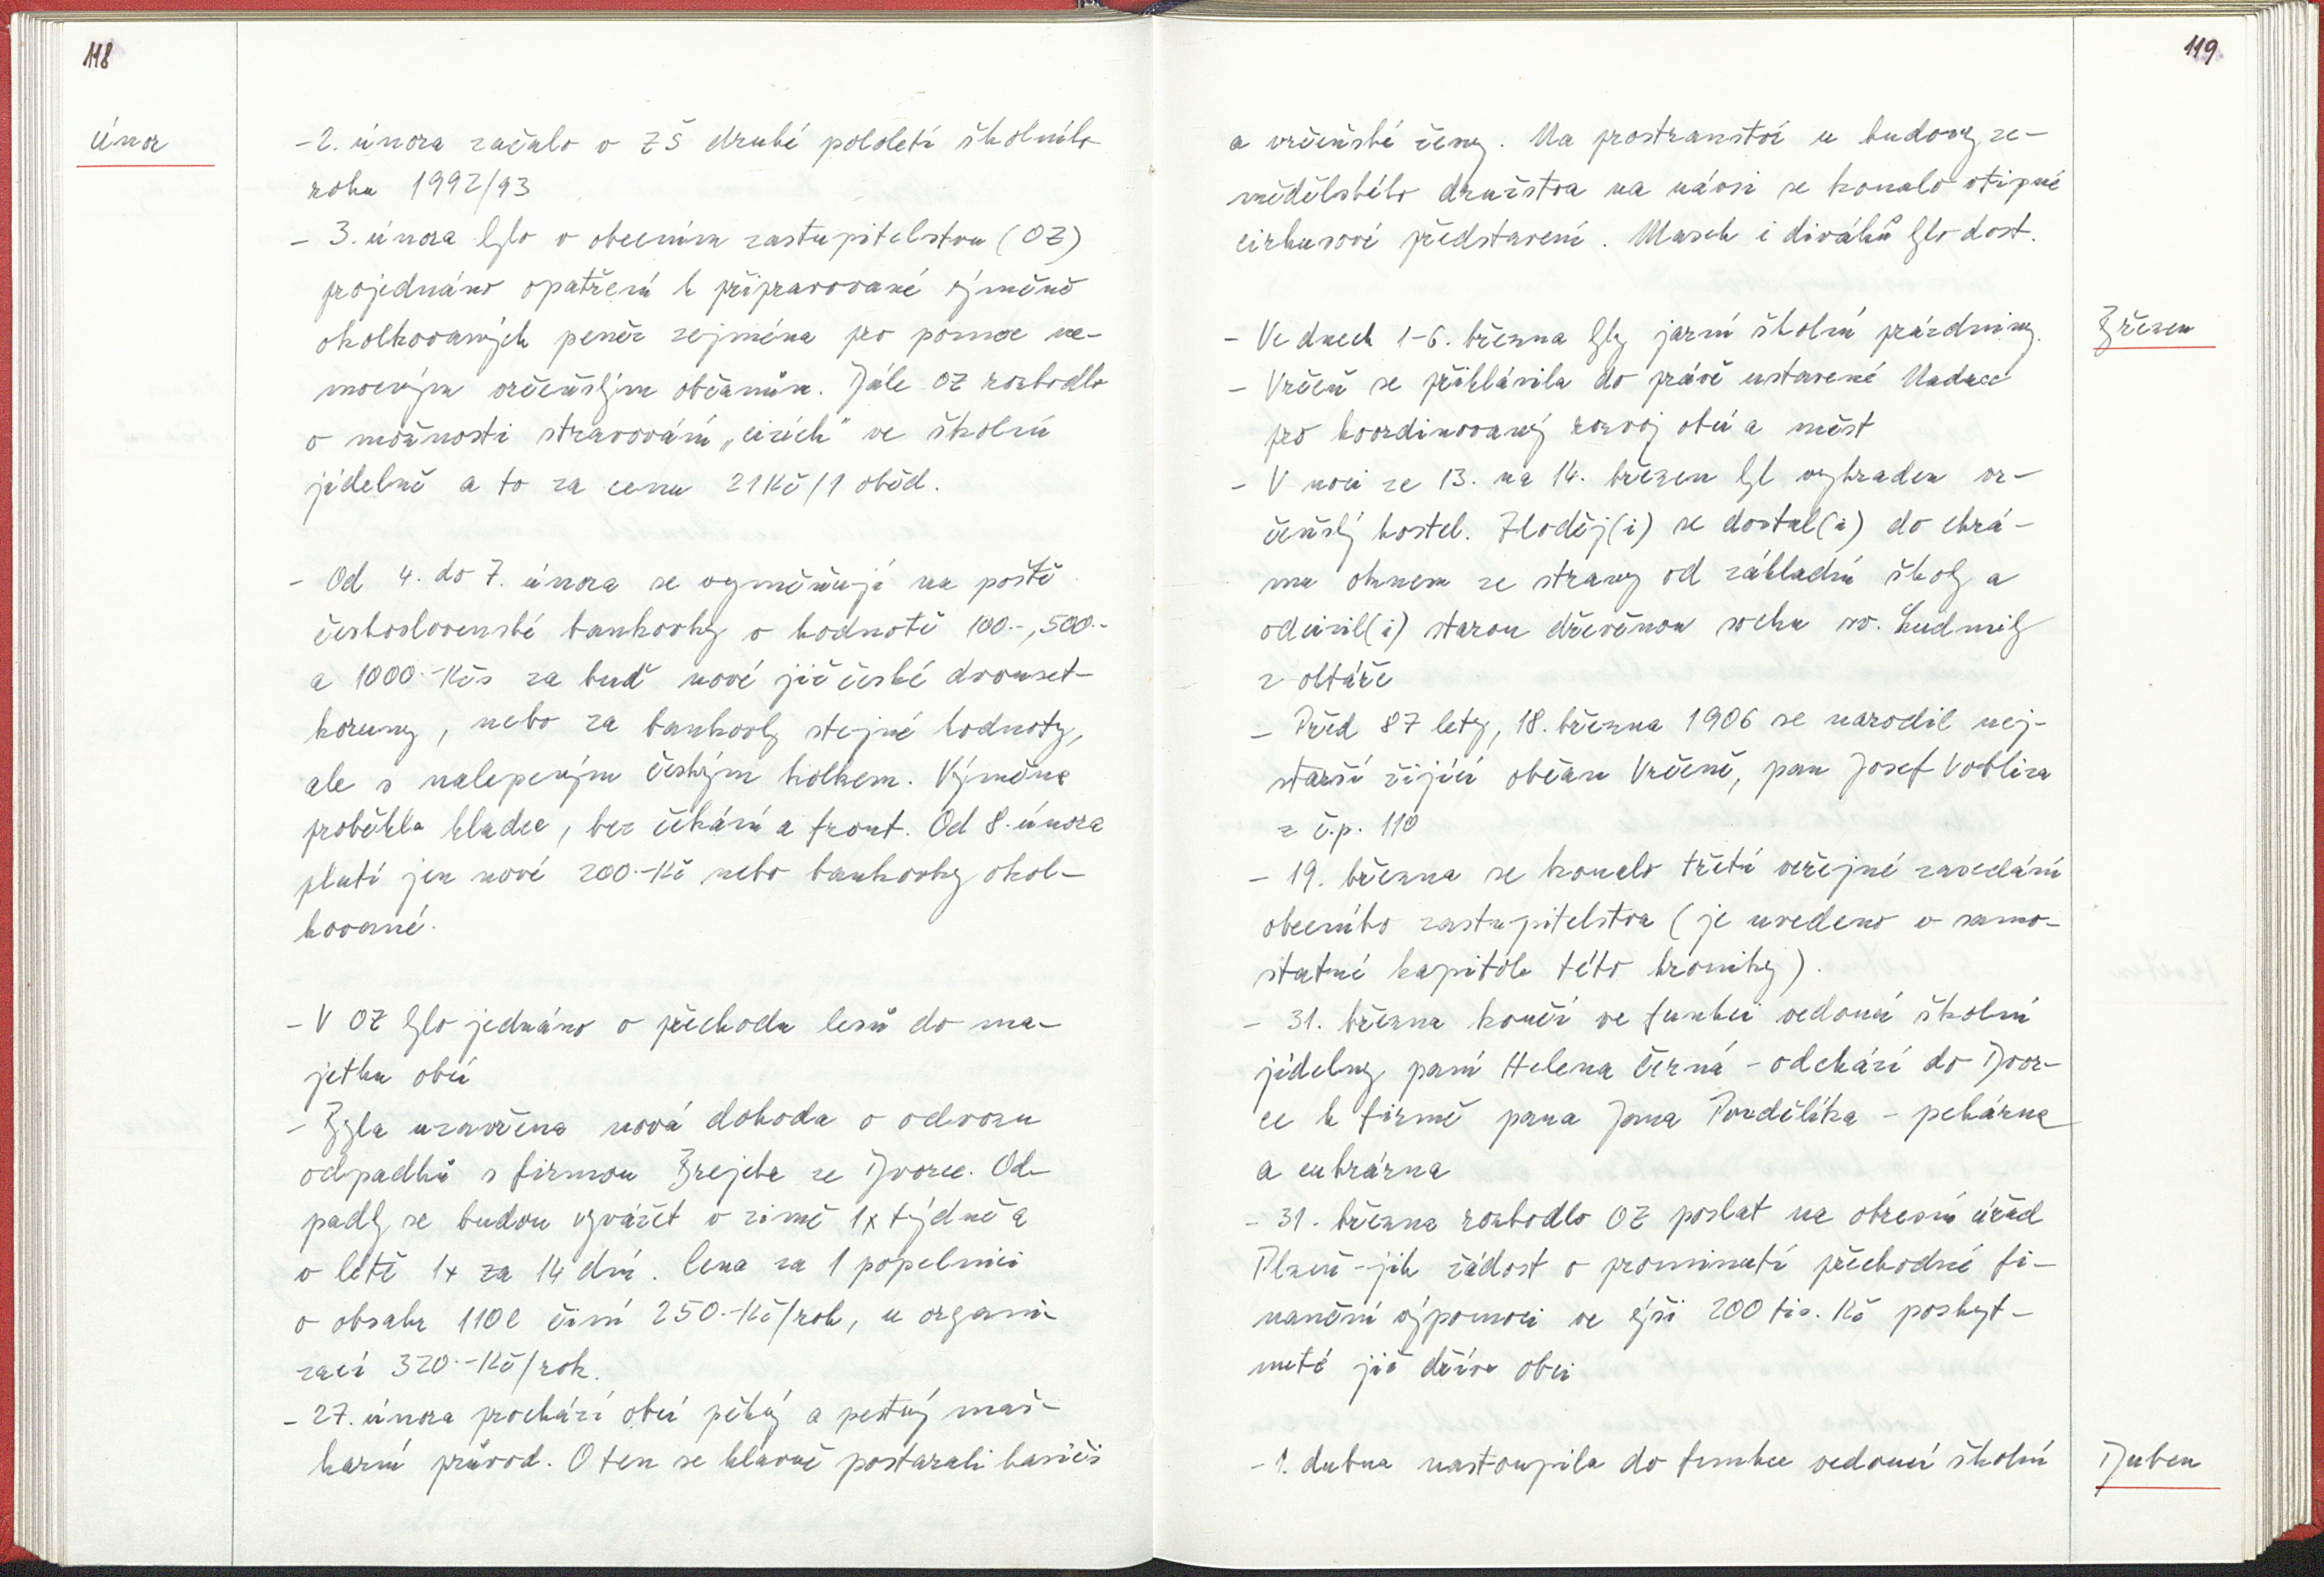 118
Únor
- 2. února začalo v ZŠ druhé pololetí školního
roku 1992/93
- 3. února bylo v obecním zastupitelstvu (OZ)
projednáno opatření k připravované výměně
okolkovaných peněz zejména pro pomoc ne-
mocným vrčeňským občanům. Dále OZ rozhodlo
o možnosti stravování „cizích" ve školní
jídelně a to za cenu 21 Kč/1 oběd.
- Od 4. do 7. února se vyměňují na poště
československé bankovky v hodnotě 100.-, 500.-
a 1000.-Kčs za buď nové již české dvouset-
koruny, nebo za bankovky stejné hodnoty,
ale s nalepeným českým kolkem. Výměna
proběhla hladce, bez čekání a front. Od 8. února
platí jen nové 200.-Kč nebo bankovky okol-
kované.
- V OZ bylo jednáno o přechodu lesů do ma-
jetku obcí
- Byla uzavřena nová dohoda o odvozu
odpadků s firmou Brejcha ze Dvorce. Od-
padky se budou vyvážet v zimě 1x týdně a
v létě 1x za 14 dní. Cena za 1 popelnici
o obsahu 110l činí 250.-Kč/rok, u organi-
zací 320.-Kč/rok.
- 27. února prochází obcí pěkný a pestrý maš-
karní průvod. O ten se hlavně postarali hasiči
119
a vrčeňské ženy. Na prostranství u budovy ze-
mědělského družstva na návsi se konalo vtipné
cirkusové představení. Masek i diváků bylo dost.
Březen
- Ve dnech 1-6. března byly jarní školní prázdniny.
- Vrčeň se přihlásila do právě ustavené Nadace
pro koordinovaný rozvoj obcí a měst
- V noci ze 13. na 14. březen byl vykraden vr-
čeňský kostel. Zloděj(i) se dostal(i) do chrá-
mu oknem ze strany od základní školy a
odcizil(i) starou dřevěnou sochu sv. Ludmily
z oltáře
- Před 87 lety, 18. března 1906 se narodil nej-
starší žijící občan Vrčeně, pan Josef Vobliza
z č.p. 110
- 19. března se konalo třetí veřejné zasedání
obecního zastupitelstva (je uvedeno v samo-
statné kapitole této kroniky).
- 31. března končí ve funkci vedoucí školní
jídelny paní Helena Černá - odchází do Dvor-
ce k firmě pana Jana Pondělíka - pekárna
a cukrárna
- 31. března rozhodlo OZ poslat na okresní úřad
Plzeň-jih žádost o prominutí přechodné fi-
nanční výpomoci ve výši 200 tis. Kč poskyt-
nuté již dříve obci
Duben
- 1. dubna nastoupila do funkce vedoucí školní